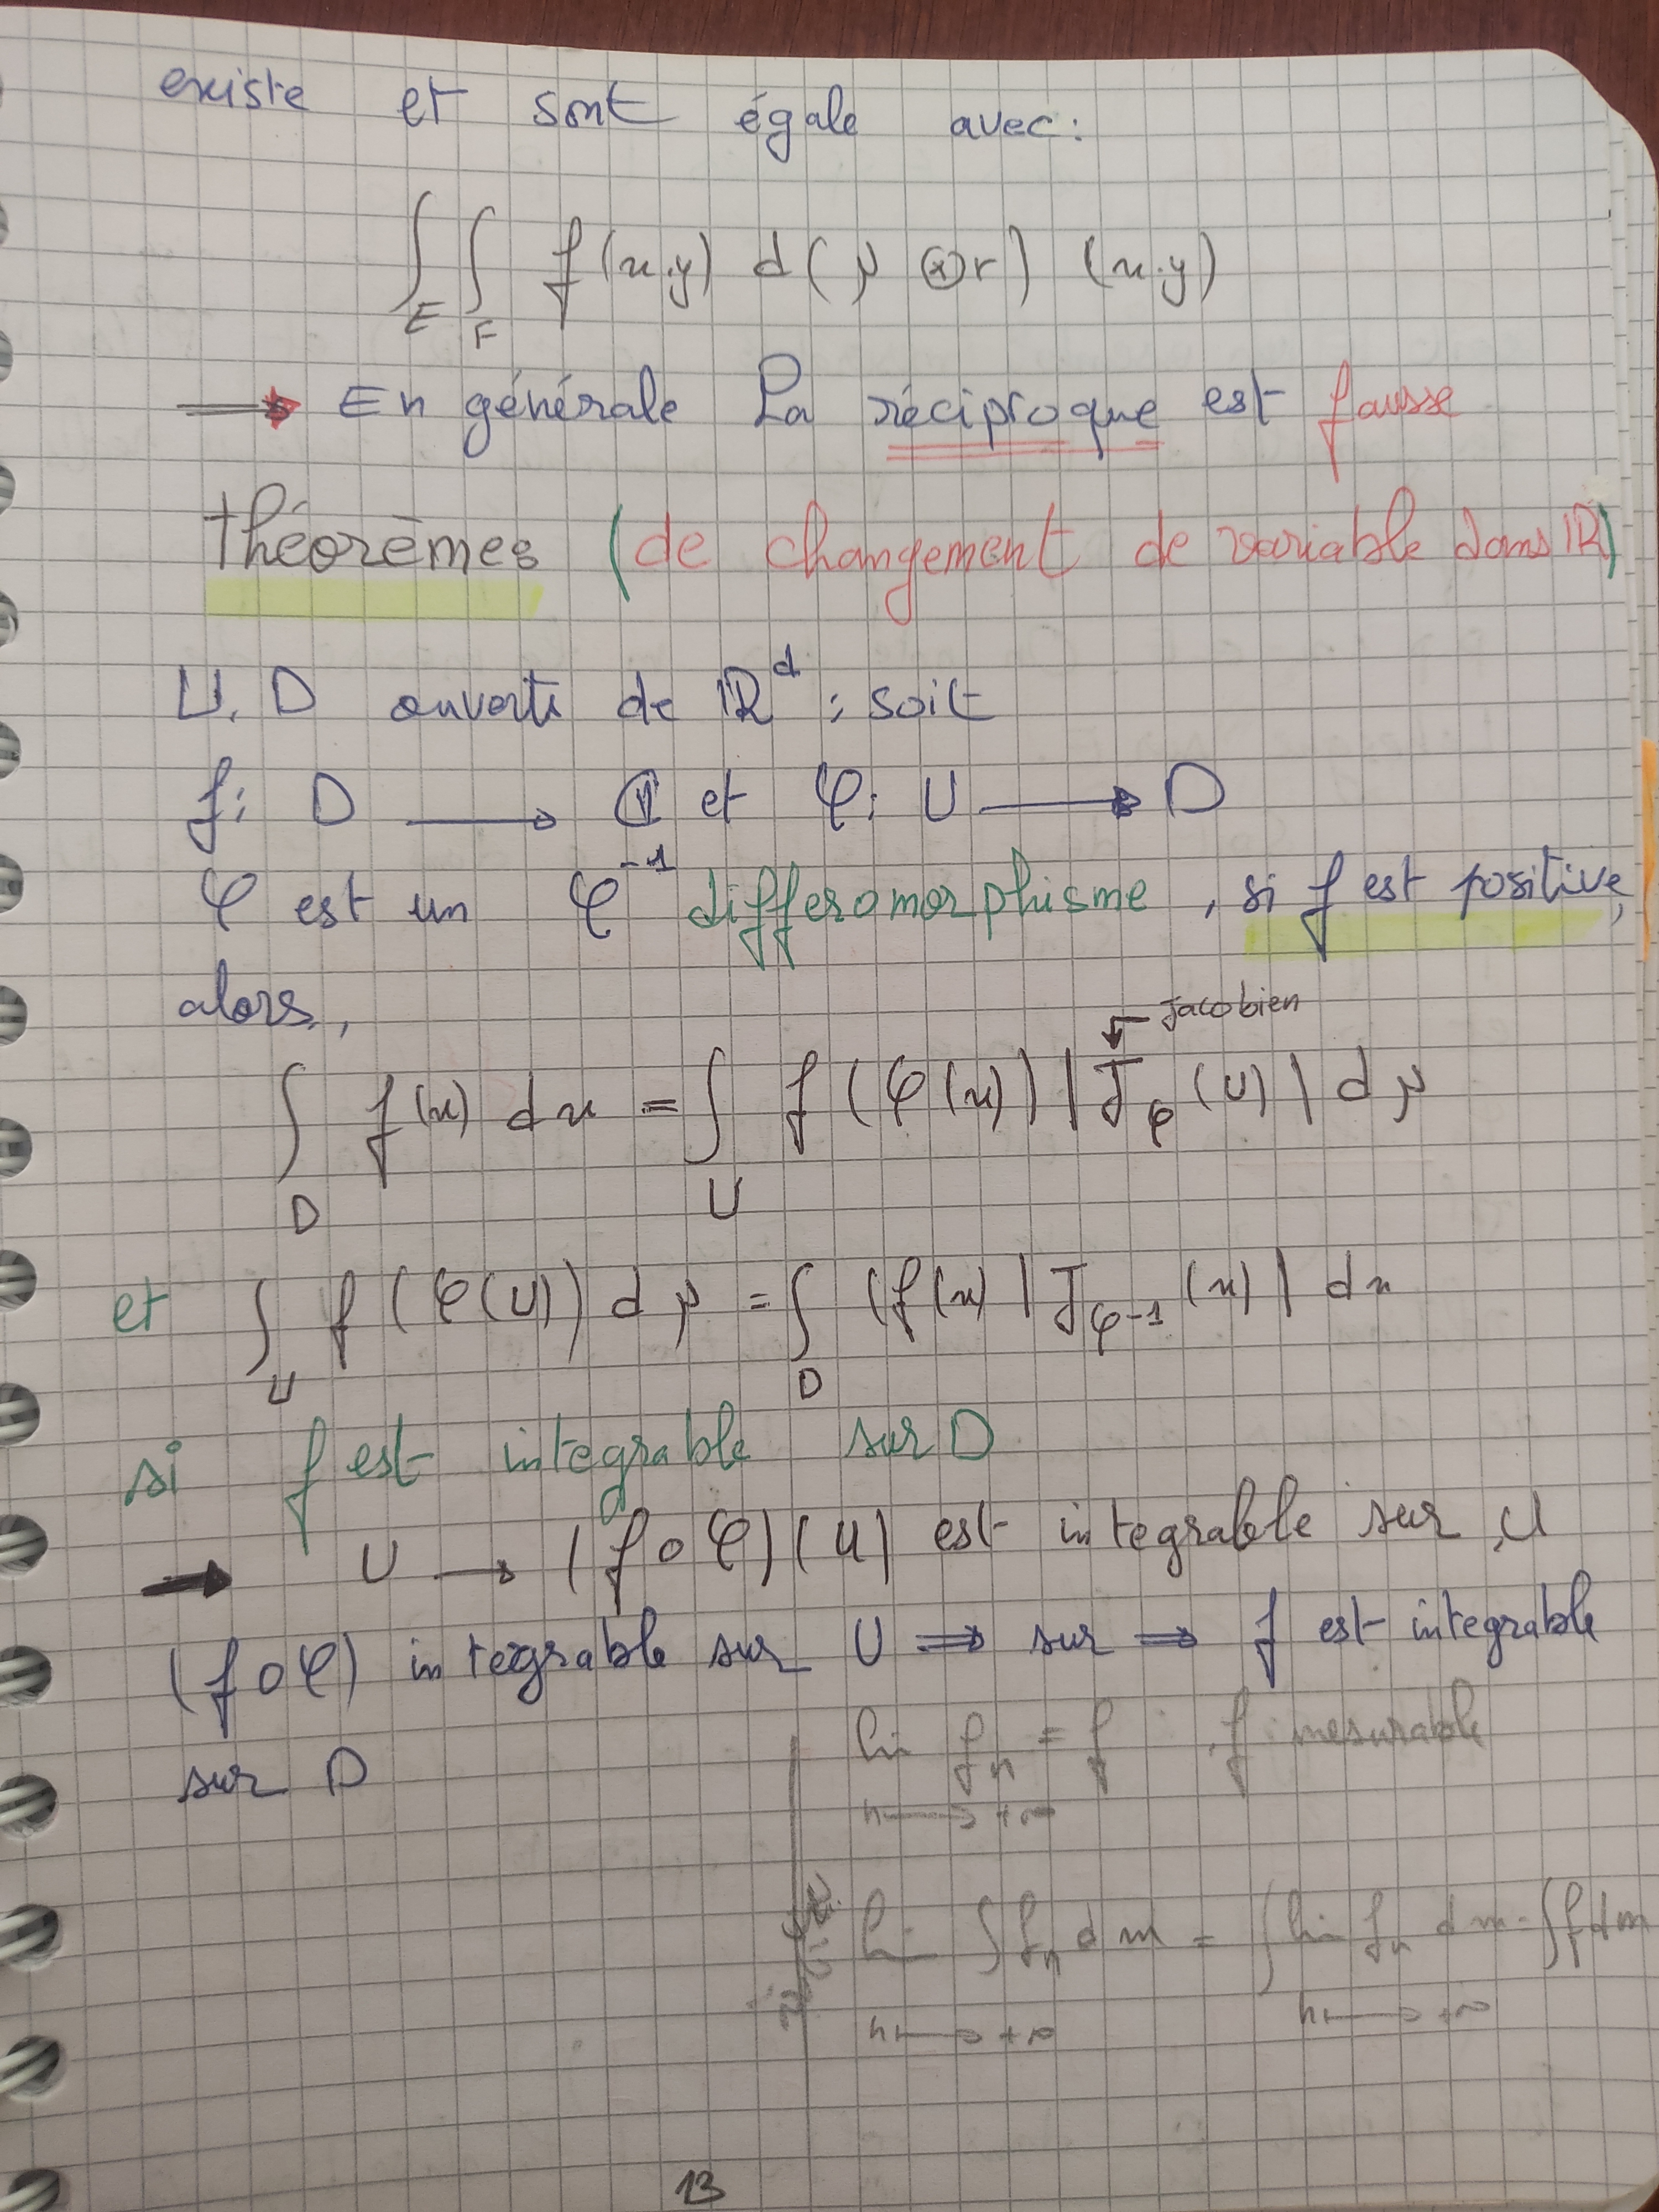 existe et sont égale avec:
∫_E ∫_F f(x.y) d(μ ⊗ r) (x.y)
→ En générale La réciproque est fausse
théorèmes (de changement de variable dans IR)
U. D ouverts de IR^d ; soit
f: D → ℂ et φ: U → D
φ est un φ^-1 differomorphisme, si f est positive,
alors,
← Jacobien
∫_D f(x) dx = ∫_U f(φ(x)) |J_φ (U)| dμ
et ∫_U f(φ(U)) dμ = ∫_D (f(x) |J_φ-1 (x)| dx
si f est integrable sur D
→ U → (f o φ)(u) est integrable sur U
(f o φ) integrable sur U ⇒ sur ⇒ f est integrable
sur D
lim f_n = f : f mesurable
n → +∞
lim ∫ f_n dm = ∫ lim f_n dm = ∫ f dm
n → +∞ n → +∞
13